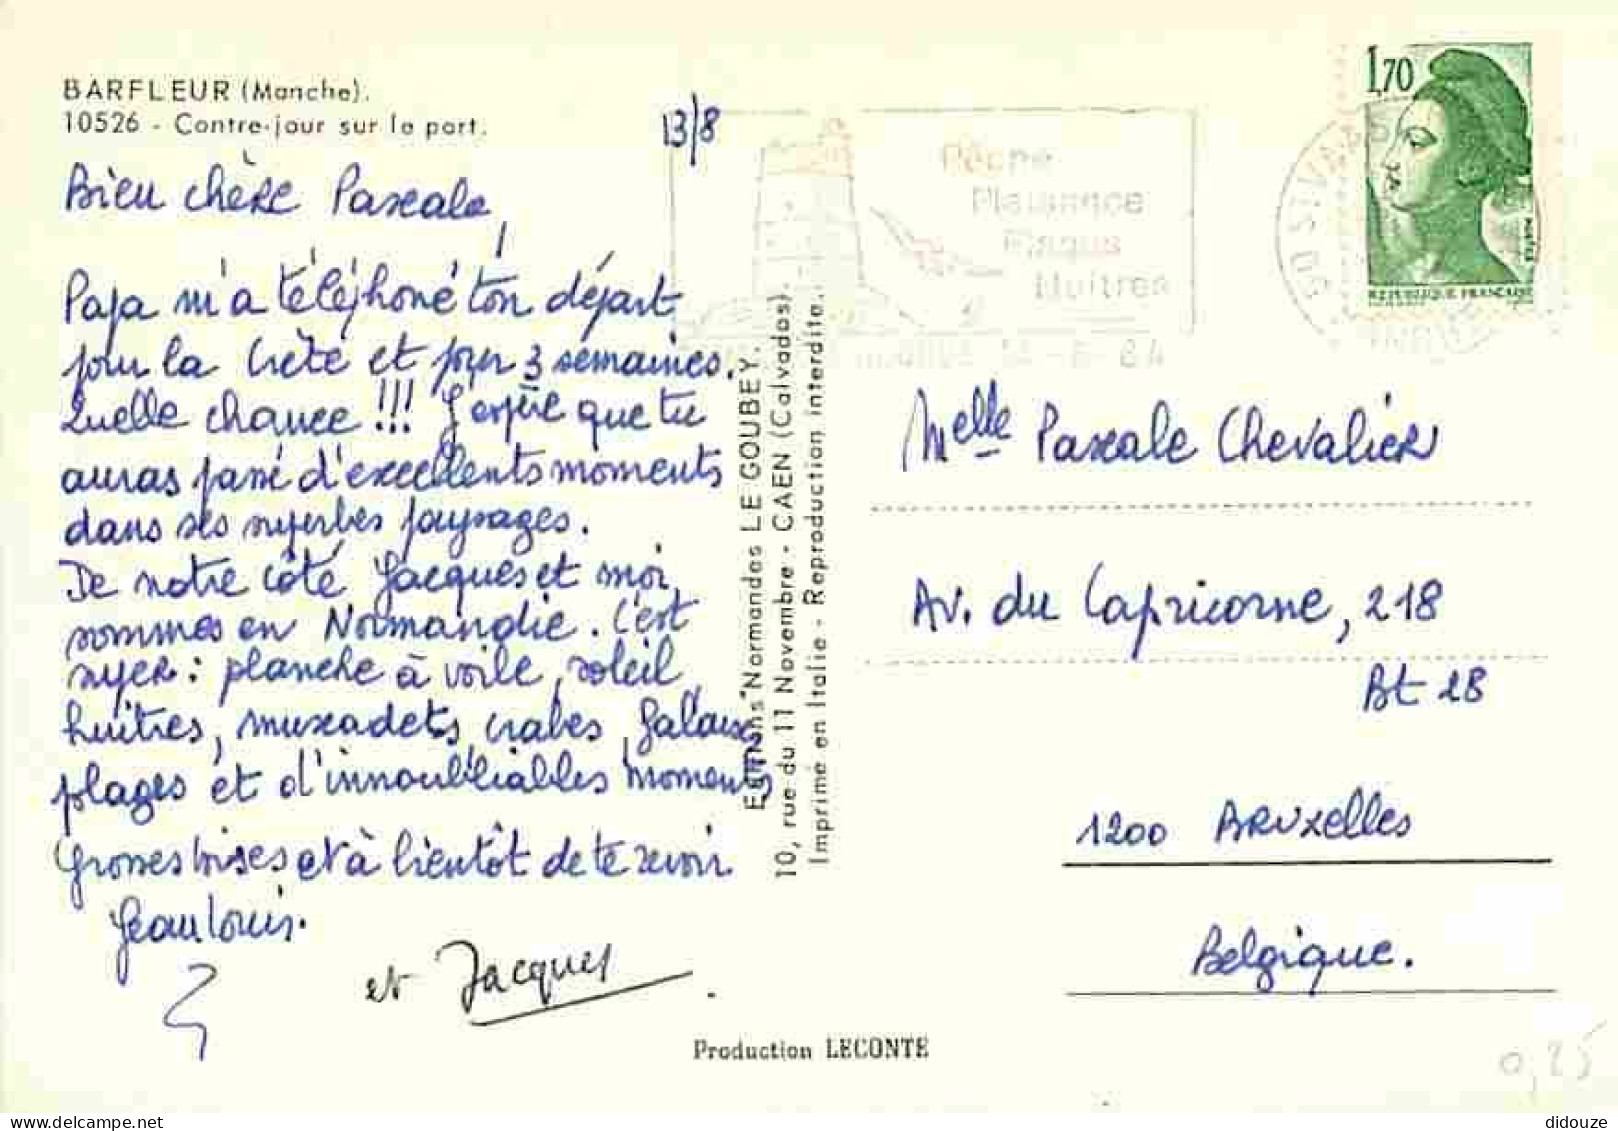 BARFLEUR (Manche).
10526 - Contre-jour sur le port.
13/8
Bien chère Pascale,
Papa m'a téléphoné ton départ
pour la Crète et pour 3 semaines.
Quelle chance !!! J'espère que tu
auras passé d'excellents moments
dans ses superbes paysages.
De notre côté Jacques et moi
sommes en Normandie. C'est
super : planche à voile, soleil,
huîtres, muscadets, crabes,
plages et d'innoubliables moments
Grosses bises et à bientôt de te revoir
Jean Louis.
et Jacques
Editions "Normandes LE GOUBEY.
10, rue du 11 Novembre - CAEN (Calvados).
Imprimé en Italie - Reproduction interdite.
Pêche
Plaisance
Huitres
1,70
REPUBLIQUE FRANÇAISE
POSTES
Melle Pascale Chevalier
Av. du Capricorne, 218
Bt 28
1200 BRUxelles
Belgique.
Production LECONTE
0,25
didouze